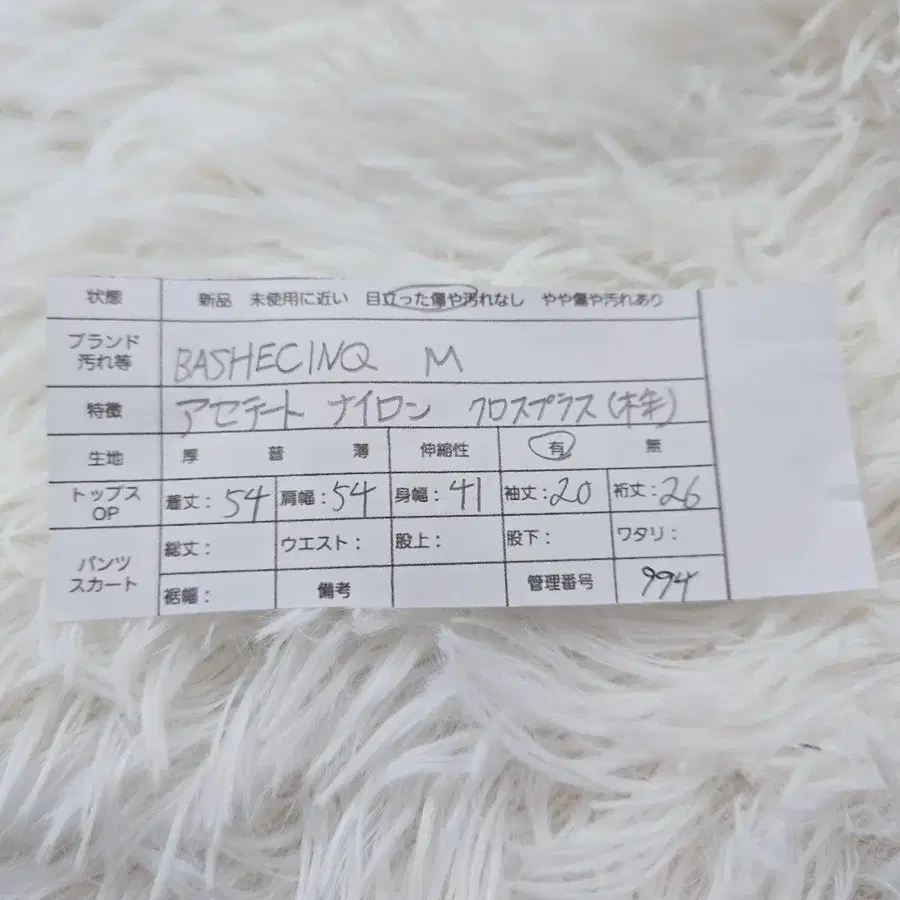 状態 新品 未使用に近い 目立った傷や汚れなし やや傷や汚れあり
ブランド
汚れ等 BASHECINQ M
特徴 アセテート ナイロン クロスプラス(株)
生地 厚 普 薄 伸縮性 有 無
トップス
OP 着丈:54 肩幅:54 身幅:41 袖丈:20 裄丈:26
パンツ
スカート 総丈: ウエスト: 股上: 股下: ワタリ:
裾幅: 備考 管理番号 994